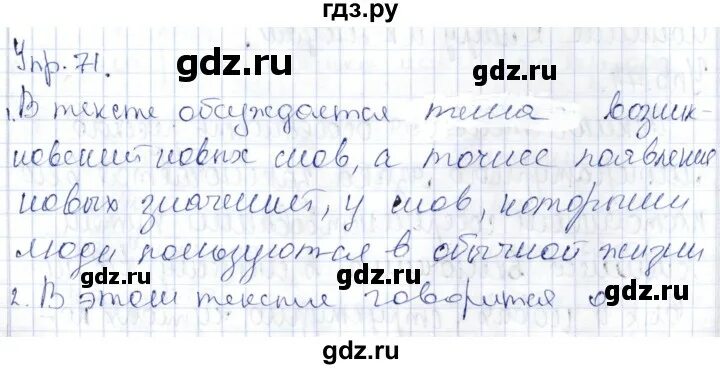 гдз.ру
Упр. 71.
gdz.ru gdz.ru
1. В тексте обсуждается тема возник-
новений новых слов, а точнее появление
gdz.ru gdz.ru
новых значений, у слов, которыми
люди пользуются в обычной жизни
2. В этом тексте говорится о
gdz.ru gdz.ru